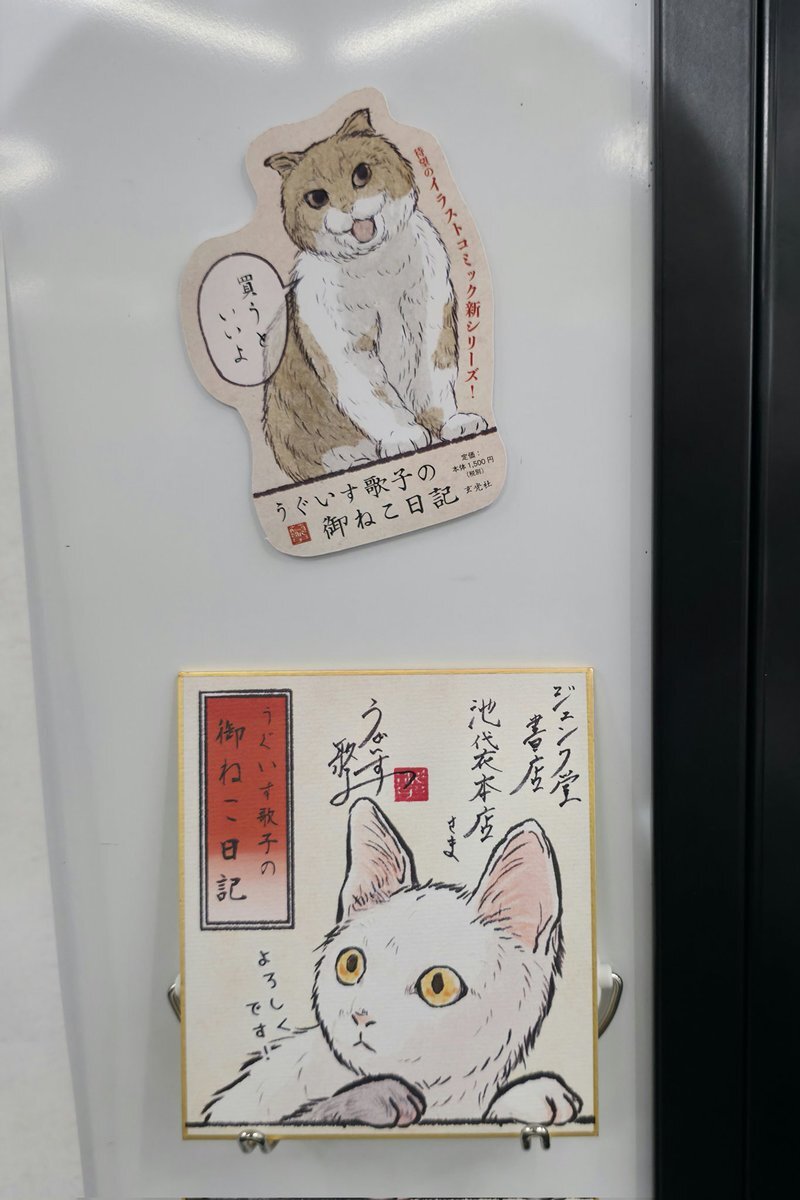 待望のイラストコミック新シリーズ!
買うと
いいよ
うぐいす歌子の
御ねこ日記
定価:
本体1,500円
(税別)
玄光社
ジュンク堂
書店
池袋本店
さま
うぐいす
歌子
うぐいす歌子の
御ねこ日記
よろしく
です!